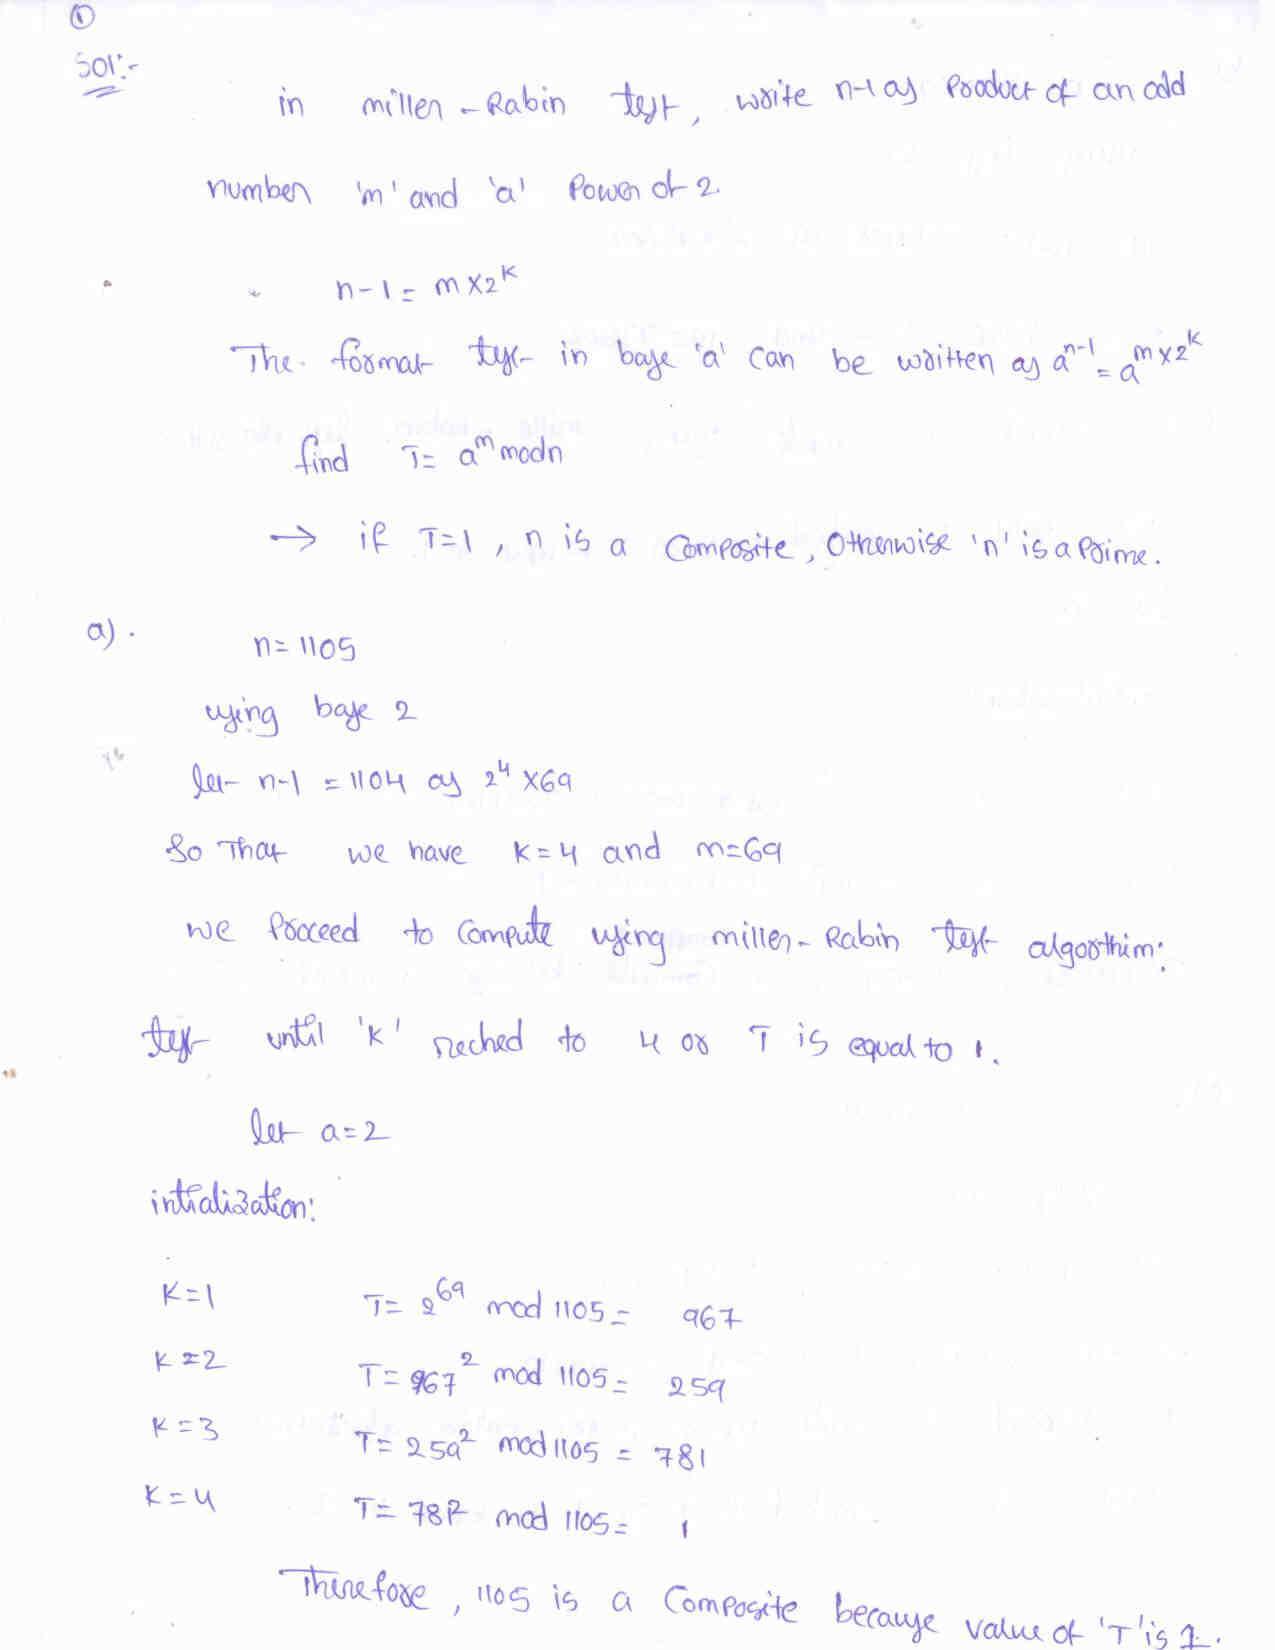 ①
Sol:-
in miller-Rabin test, write n-1 as Product of an odd
number 'm' and 'a' Power of 2.
n-1 = m×2^k
The format test in base 'a' can be written as a^n-1 = a^m×2^k
find T= a^m mod n
→ if T=1, n is a Composite, Otherwise 'n' is a Prime.
a).
n= 1105
using base 2
let n-1 = 1104 as 2^4 ×69
So That we have k=4 and m=69
we Proceed to Compute using miller-Rabin test algorthim:
test until 'k' reched to 4 or T is equal to 1.
let a=2
intialization:
K=1 T= 2^69 mod 1105= 967
K=2 T= 967^2 mod 1105= 259
K=3 T= 259^2 mod 1105 = 781
K=4 T= 781^2 mod 1105= 1
Therefore, 1105 is a Composite because value of 'T' is 1.